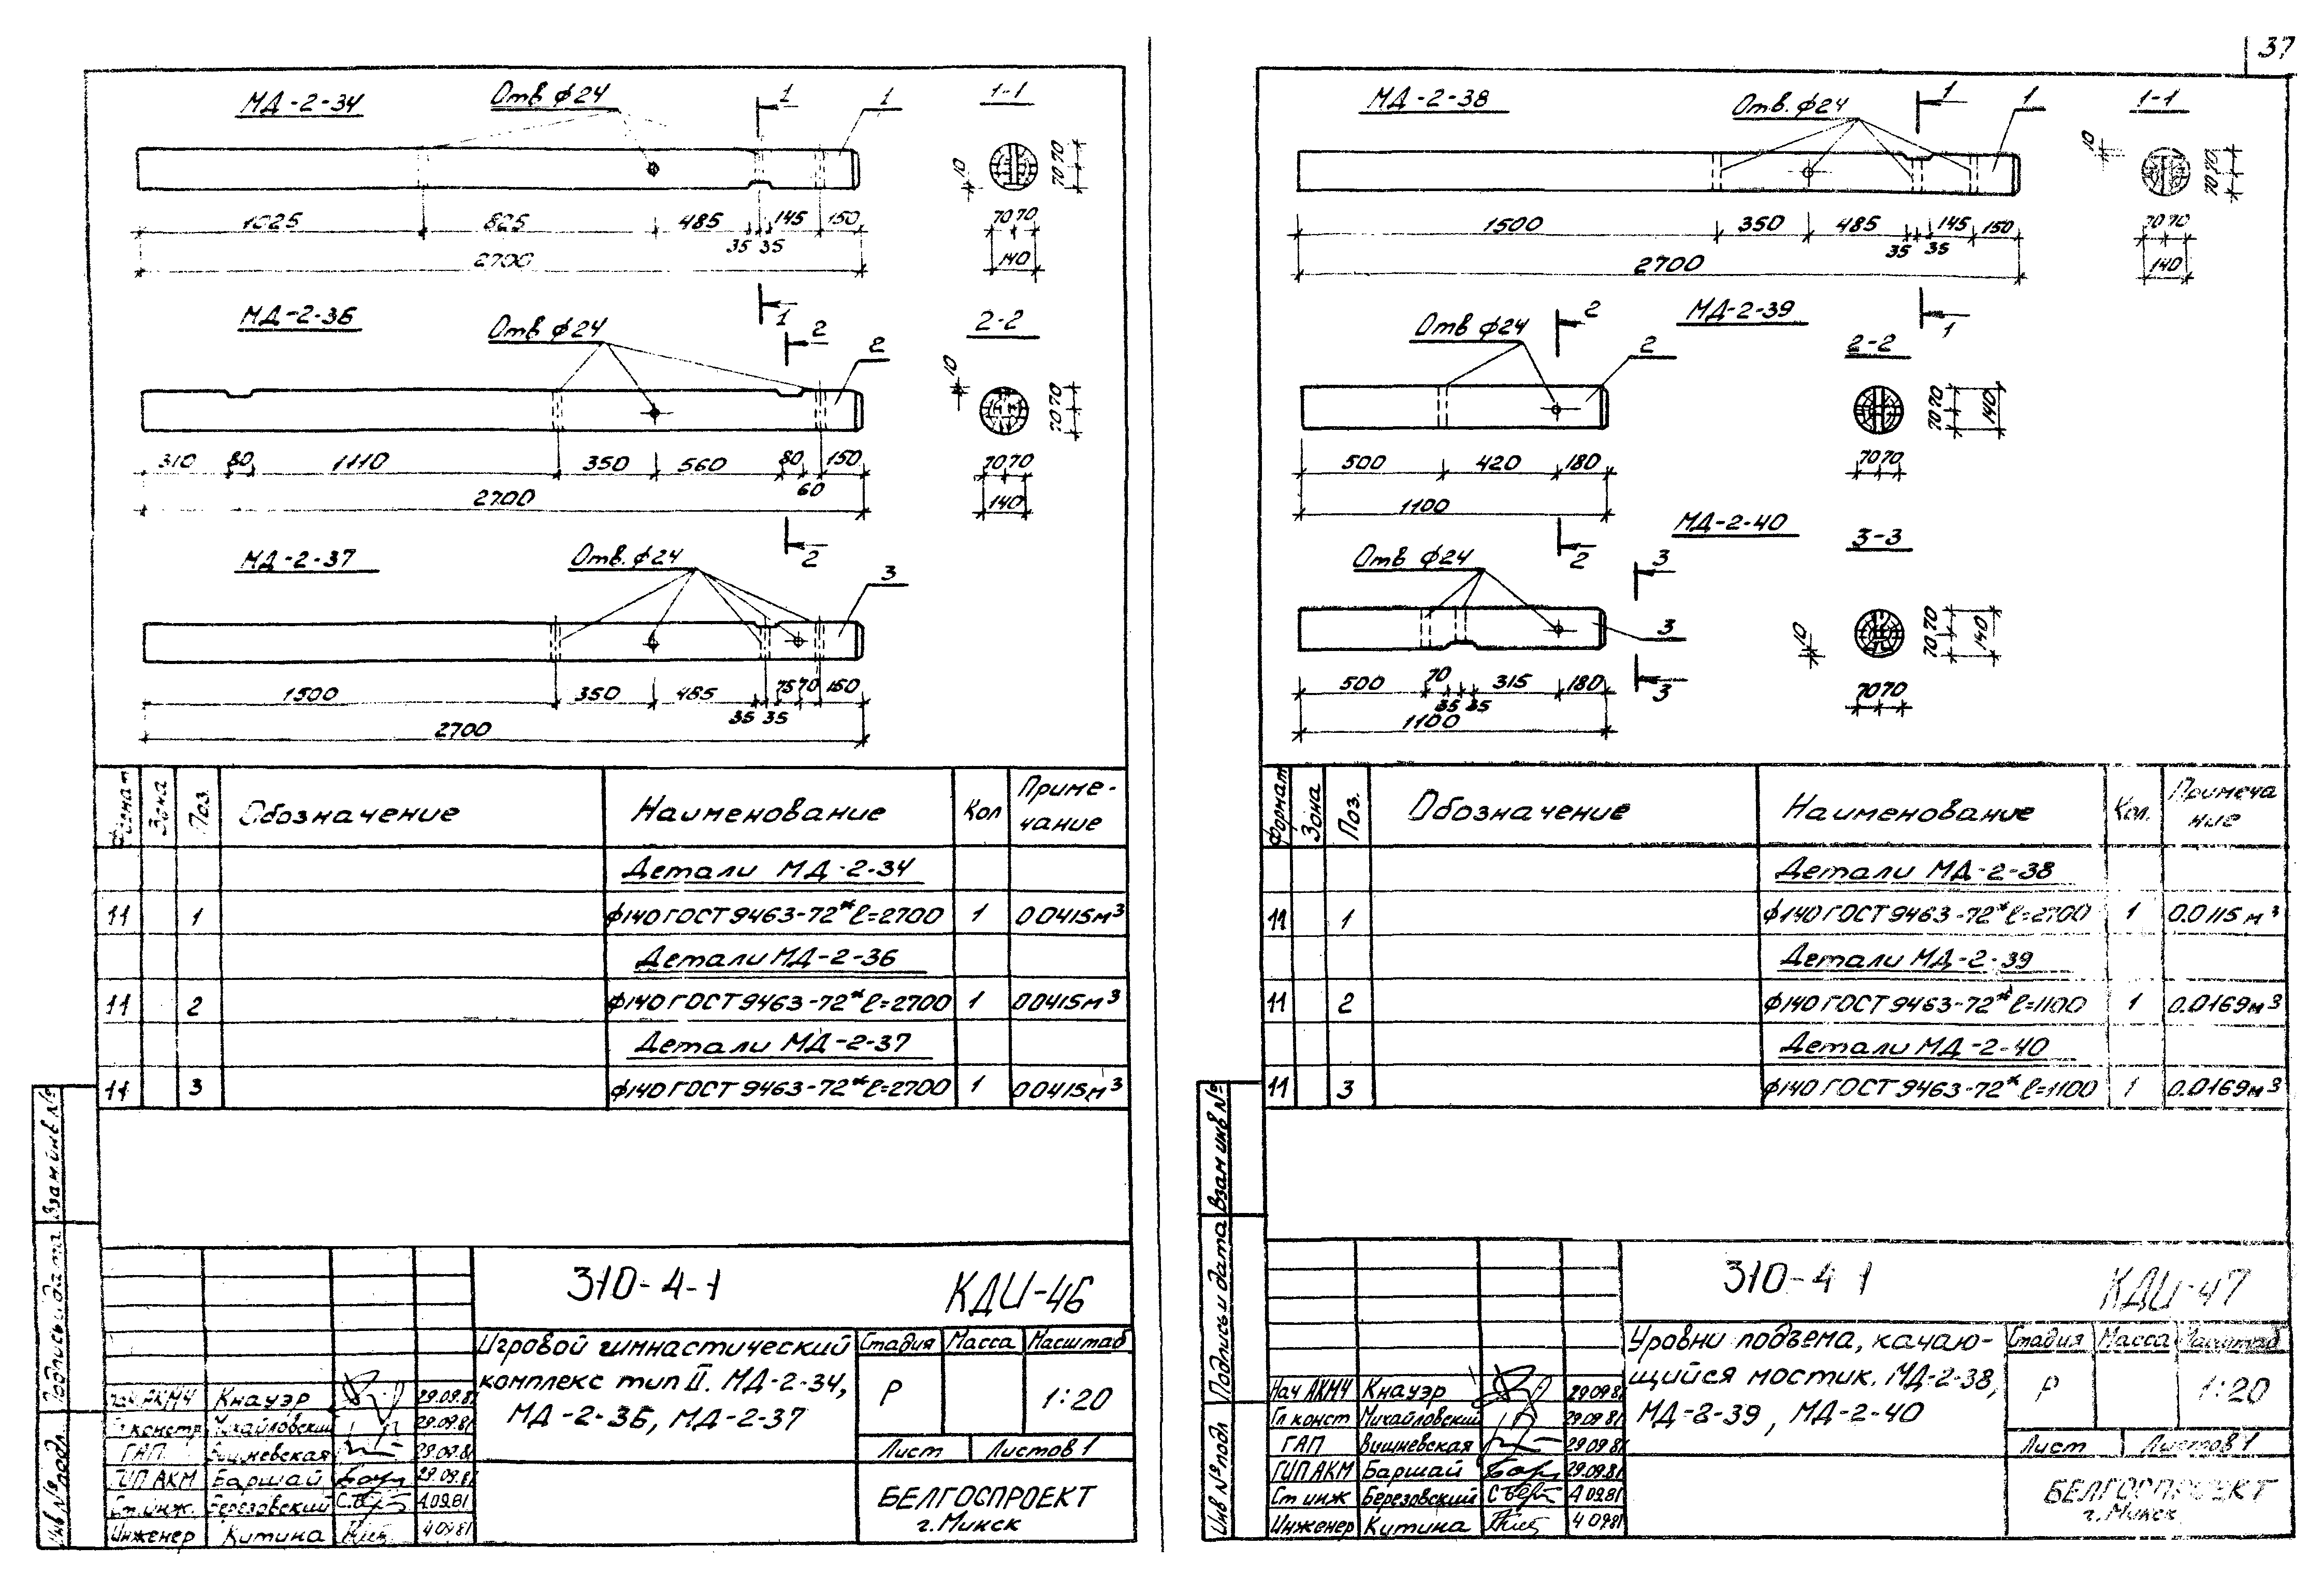 37
МД-2-34
Отв ф24
1
1
1-1
10
70 70
1025 825 485 145 150
35 35
2700
70 70
140
1
МД-2-36
Отв ф24
2
2
2-2
10
70 70
310 80 1110 350 560 80 150
60
2700
70 70
140
2
МД-2-37
Отв. ф24
3
1500 350 485 75 70 150
35 35
2700
Формат Зона Поз. Обозначение Наименование Кол Приме-
чание
Детали МД-2-34
11 1 ф140 ГОСТ 9463-72* ℓ=2700 1 0.0415м³
Детали МД-2-36
11 2 ф140 ГОСТ 9463-72* ℓ=2700 1 0.0415м³
Детали МД-2-37
11 3 ф140 ГОСТ 9463-72* ℓ=2700 1 0.0415м³
Взам инв №
Подпись и дата
Инв № подл
310-4-1
КДИ-46
Игровой гимнастический
комплекс тип II. МД-2-34,
МД-2-36, МД-2-37
Стадия Масса Масштаб
Р 1:20
Лист Листов 1
БЕЛГОСПРОЕКТ
г.Минск
Нач АКМЧ Кнауэр 29.09.81
Гл констр Михайловский 29.09.81
ГАП Вишневская 29.09.81
ГИП АКМ Баршай 29.09.81
Ст.инж. Березовский 4.09.81
Инженер Китина 4.09.81
МД-2-38
Отв. ф24
1
1
1-1
10
70 70
1500 350 485 145 150
35 35
2700
70 70
140
1
МД-2-39
Отв ф24
2
2
2-2
70 70
140
500 420 180
1100
70 70
2
МД-2-40
Отв ф24
3
3
3-3
10
70 70
140
500 70 315 180
35 35
1100
70 70
3
Формат Зона Поз. Обозначение Наименование Кол. Примеча
ние
Детали МД-2-38
11 1 ф140 ГОСТ 9463-72* ℓ=2700 1 0.0115м³
Детали МД-2-39
11 2 ф140 ГОСТ 9463-72* ℓ=1100 1 0.0169м³
Детали МД-2-40
11 3 ф140 ГОСТ 9463-72* ℓ=1100 1 0.0169м³
Взам инв №
Подпись и дата
Инв № подл
310-4 1
КДИ-47
Уровни подъема, качаю-
щийся мостик. МД-2-38,
МД-2-39, МД-2-40
Стадия Масса Масштаб
Р 1:20
Лист Листов 1
БЕЛГОСПРОЕКТ
г.Минск
Нач АКМЧ Кнауэр 29.09.81
Гл конст Михайловский 29.09.81
ГАП Вишневская 29.09.81
ГИП АКМ Баршай 29.09.81
Ст инж Березовский 4.09.81
Инженер Китина 4.09.81